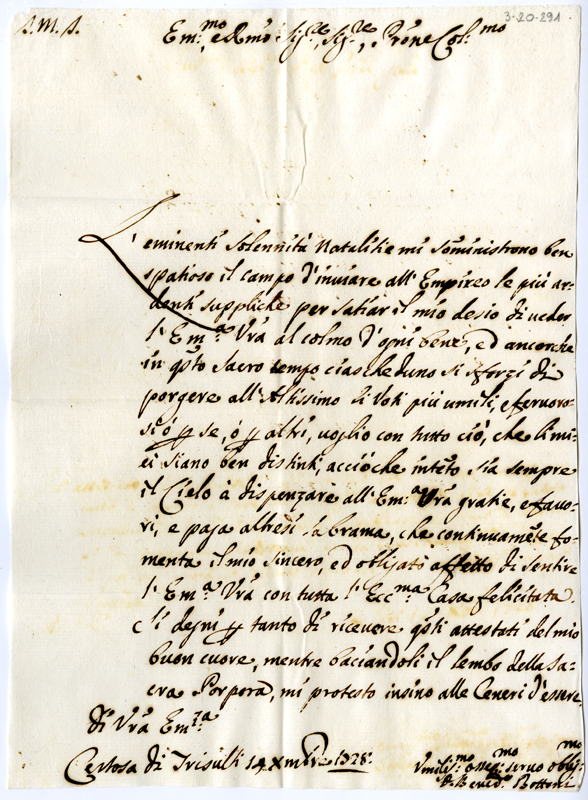 3-20-291
Em.mo, e Rmo Sig.re, Sig.re, e Prone Col.mo
L'eminenti solennità Natalitie mi sõministrono ben
spatioso il campo d'inuiare all'Empireo le più ar-
denti suppliche per satiar il mio desio di ueder
l'Em.za Vrã al colmo d'ogni bene, ed ancorche
in qsto sacro tempo ciascheduno si sforzi di
porgere all'Altissimo li Voti più umili, e feruoro-
si ò p se, ò p altri, uoglio con tutto ciò, che li mi-
ei siano ben distinti, acciòche intẽto sia sempre
il Cielo à dispenzare all'Em.a Vrã gratie, e fauo-
ri, e paja altresì la brama, che continuamẽte fo-
menta il mio sincero, ed obligato affetto di sentire
l'Em.a Vrã con tutta l'Ecc.ma Casa felicitata.
Si degni p tanto di riceuere qsti attestati del mio
buon cuore, mentre baciandoli il lembo della Sa-
cra Porpora, mi protesto insino alle Ceneri d'essere
di Vrã Em.za
Certosa di Trisulti 14 Xmbre 1728.
Vmiliss.mo osseq.mo seruo oblig.mo
D. Bened.o Bottoni